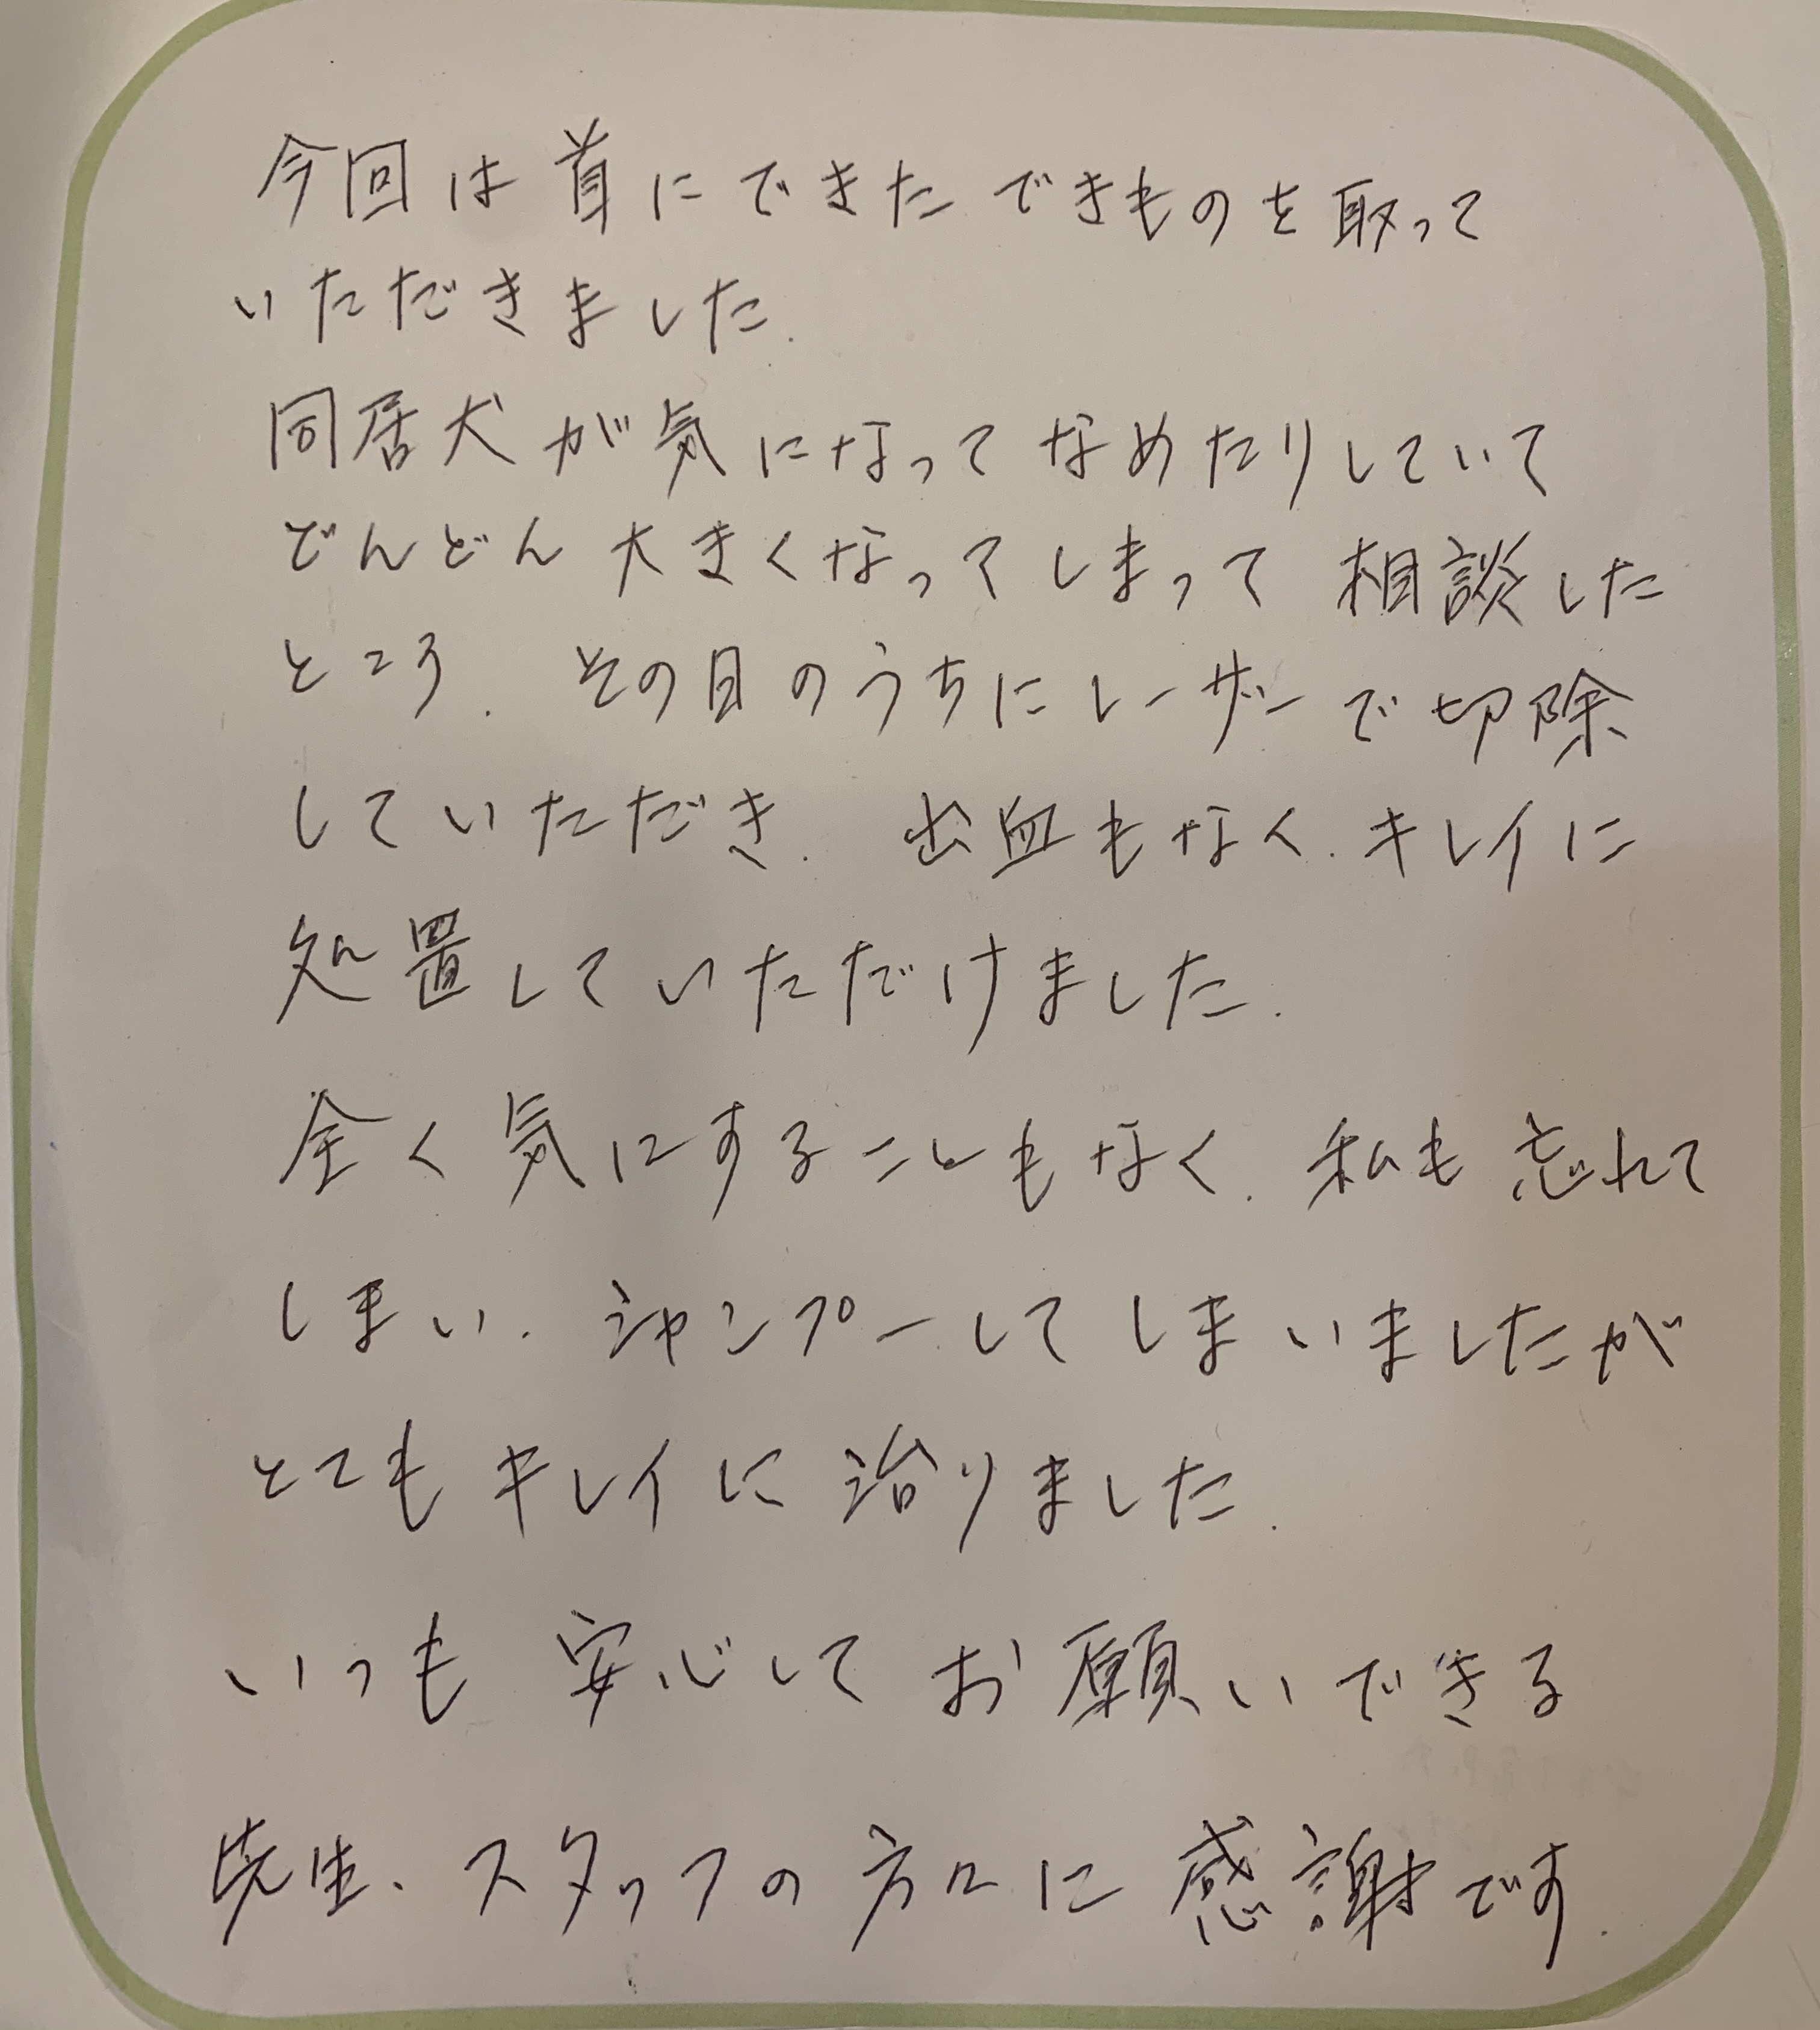 今回は首にできたできものを取って
いただきました.
同居犬が気になってなめたりしていて
どんどん大きくなってしまって相談した
ところ.その日のうちにレーザーで切除
していただき.出血もなく.キレイに
処置していただけました.
全く気にすることもなく.私も忘れて
しまい.シャンプーしてしまいましたが
とてもキレイに治りました.
いつも安心してお願いできる
先生、スタッフの方々に感謝です.